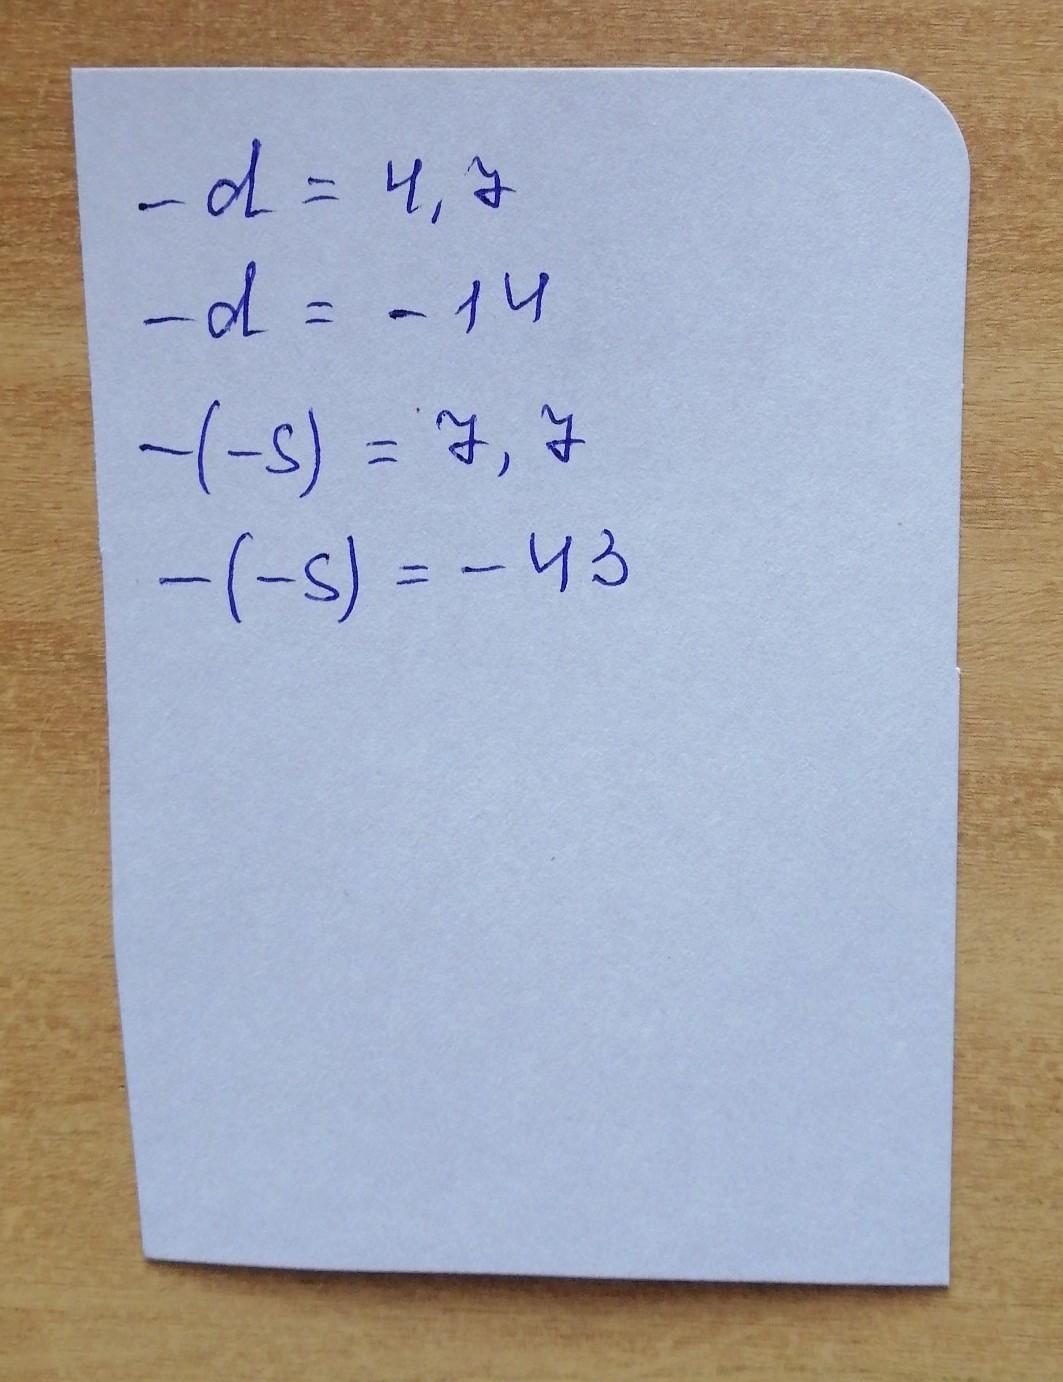 -d = 4,7
-d = -14
-(-s) = 7,7
-(-s) = -43